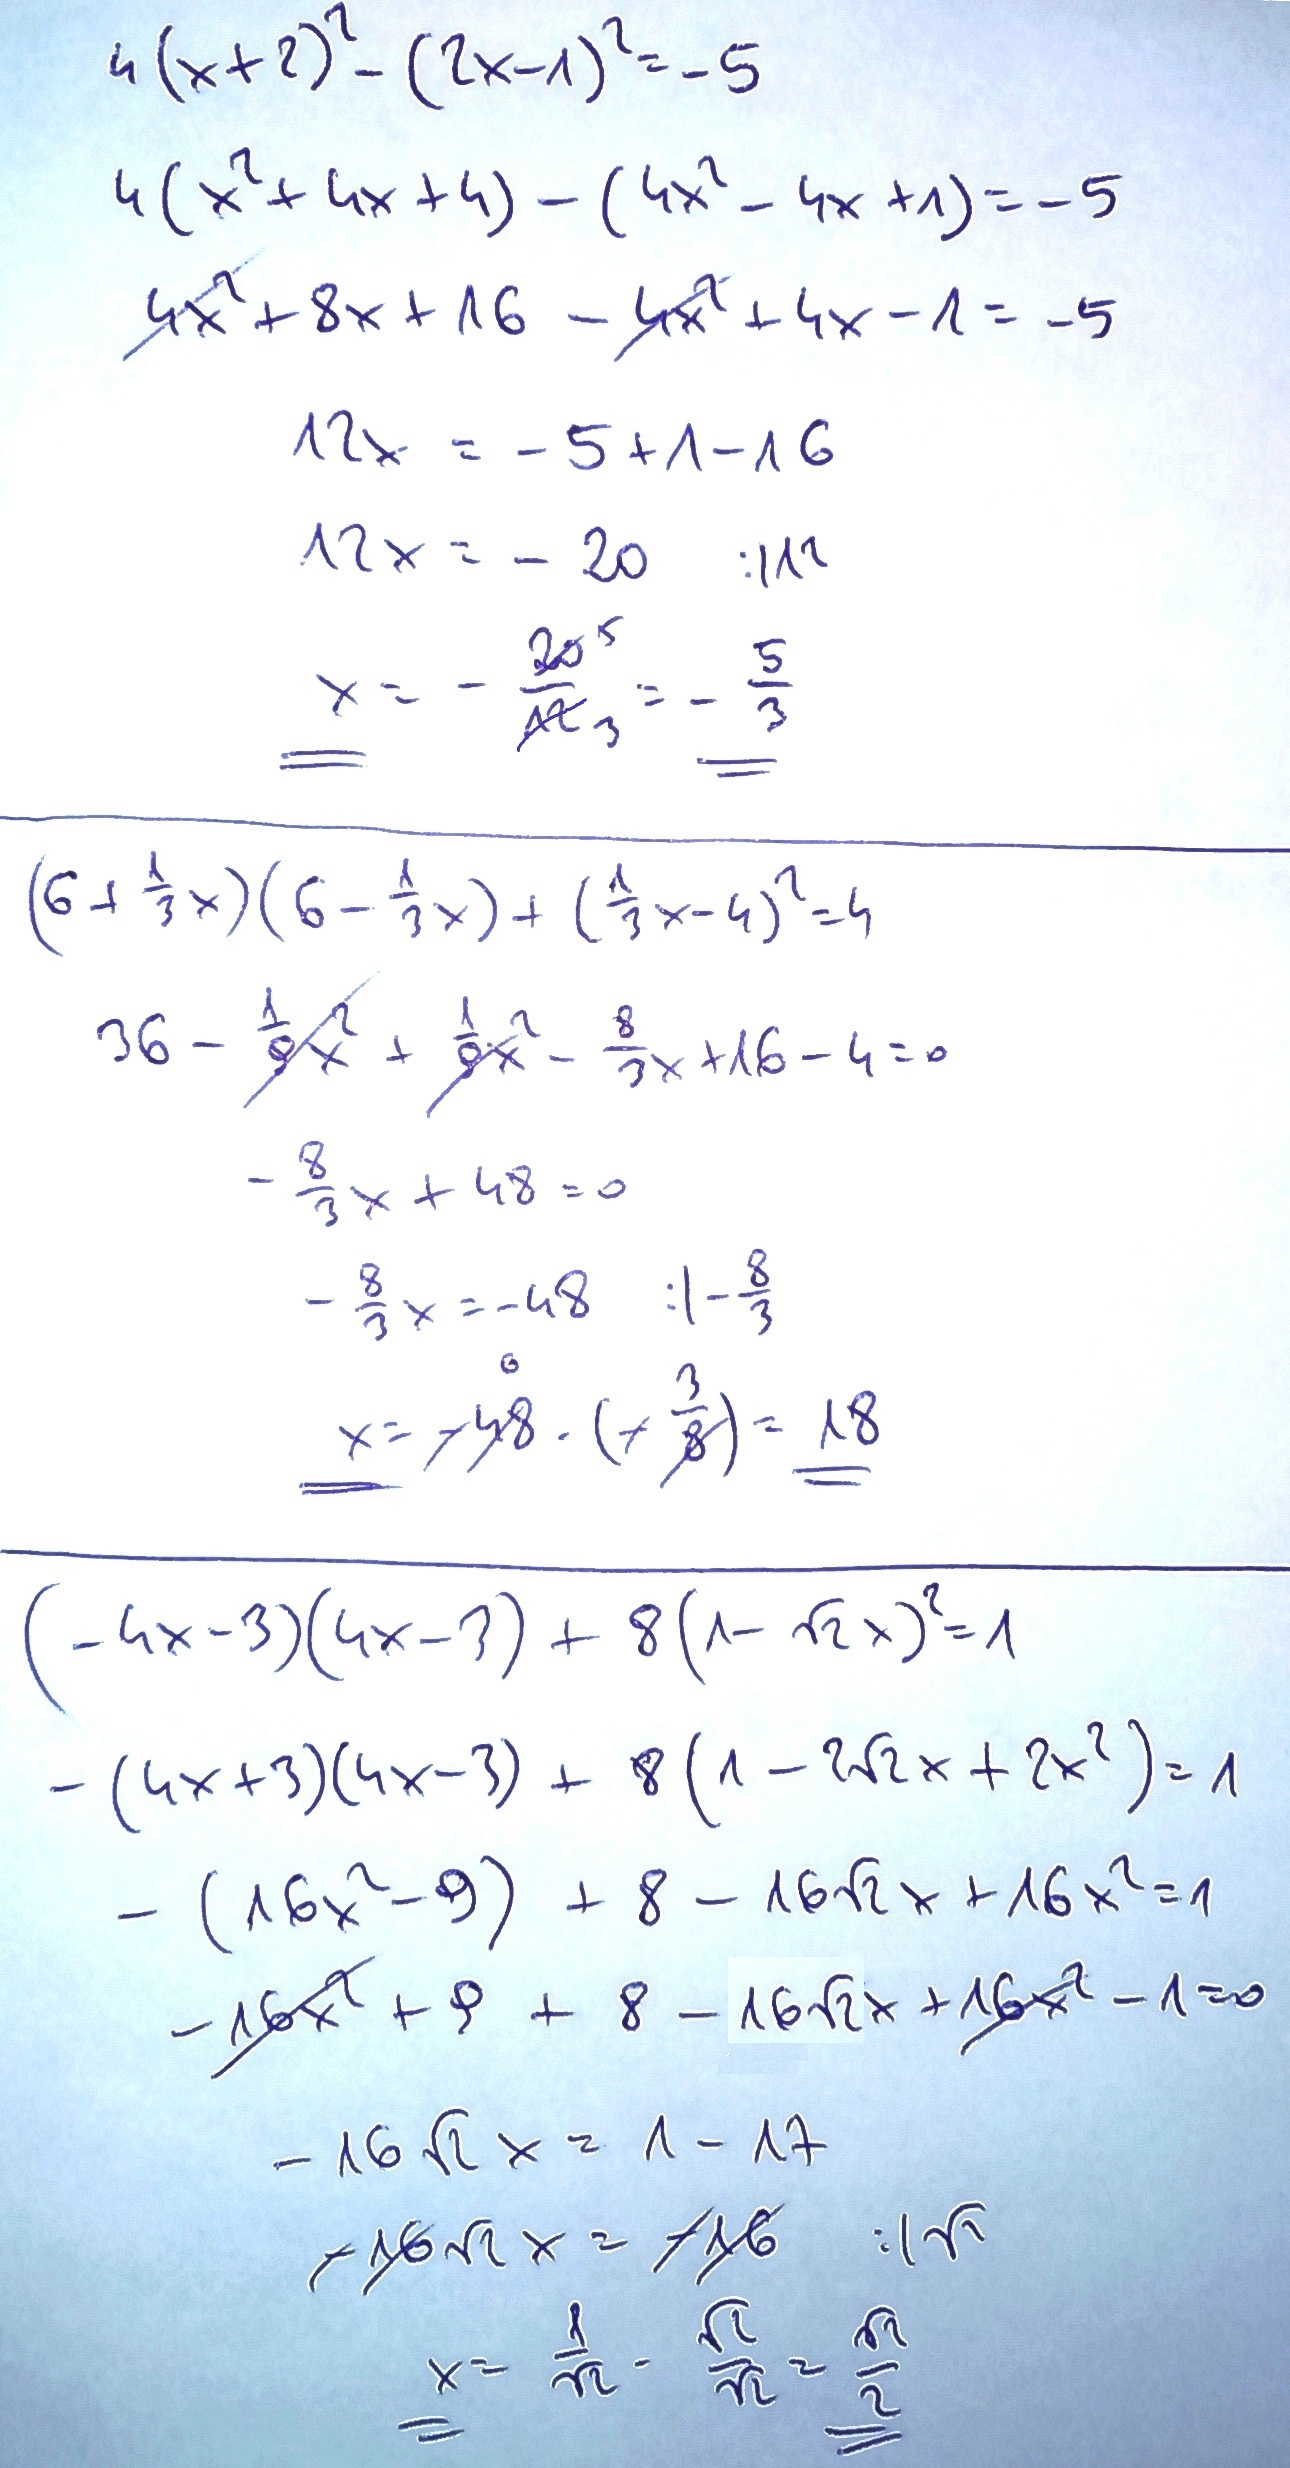 4(x+2)² - (2x-1)² = -5
4(x² + 4x + 4) - (4x² - 4x + 1) = -5
4x² + 8x + 16 - 4x² + 4x - 1 = -5
12x = -5 + 1 - 16
12x = -20 :|12
x = - 20/12 5 3 = - 5/3
(6 + 1/3 x)(6 - 1/3 x) + (1/3 x - 4)² = 4
36 - 1/9 x² + 1/9 x² - 8/3 x + 16 - 4 = 0
- 8/3 x + 48 = 0
- 8/3 x = -48 :|- 8/3
6
x = -48 · (- 3/8) = 18
(-4x-3)(4x-3) + 8(1-√2 x)² = 1
-(4x+3)(4x-3) + 8(1 - 2√2 x + 2x²) = 1
-(16x² - 9) + 8 - 16√2 x + 16x² = 1
-16x² + 9 + 8 - 16√2 x + 16x² - 1 = 0
-16√2 x = 1 - 17
-16√2 x = -16 :|√2
x = 1/√2 · √2/√2 = √2/2